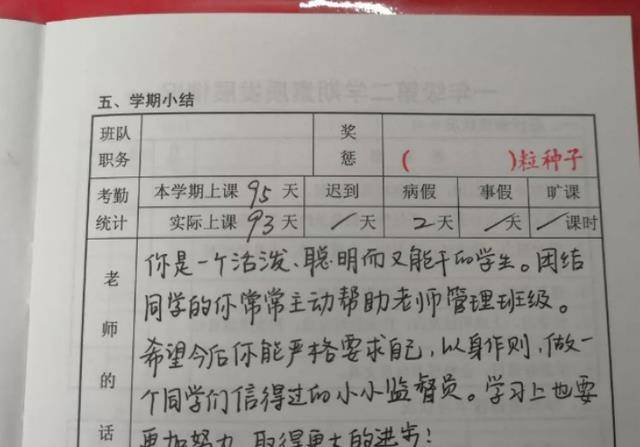 五、学期小结
班队职务 奖惩 ( )粒种子
考勤统计 本学期上课 95 天 迟到 病假 事假 旷课
实际上课 93 天 / 天 2 天 / 天 / 课时
老师的话
你是一个活泼、聪明而又能干的学生。团结
同学的你常常主动帮助老师管理班级。
希望今后你能严格要求自己，以身作则，做一
个同学们信得过的小小监督员。学习上也要
更加努力，取得更大的进步！